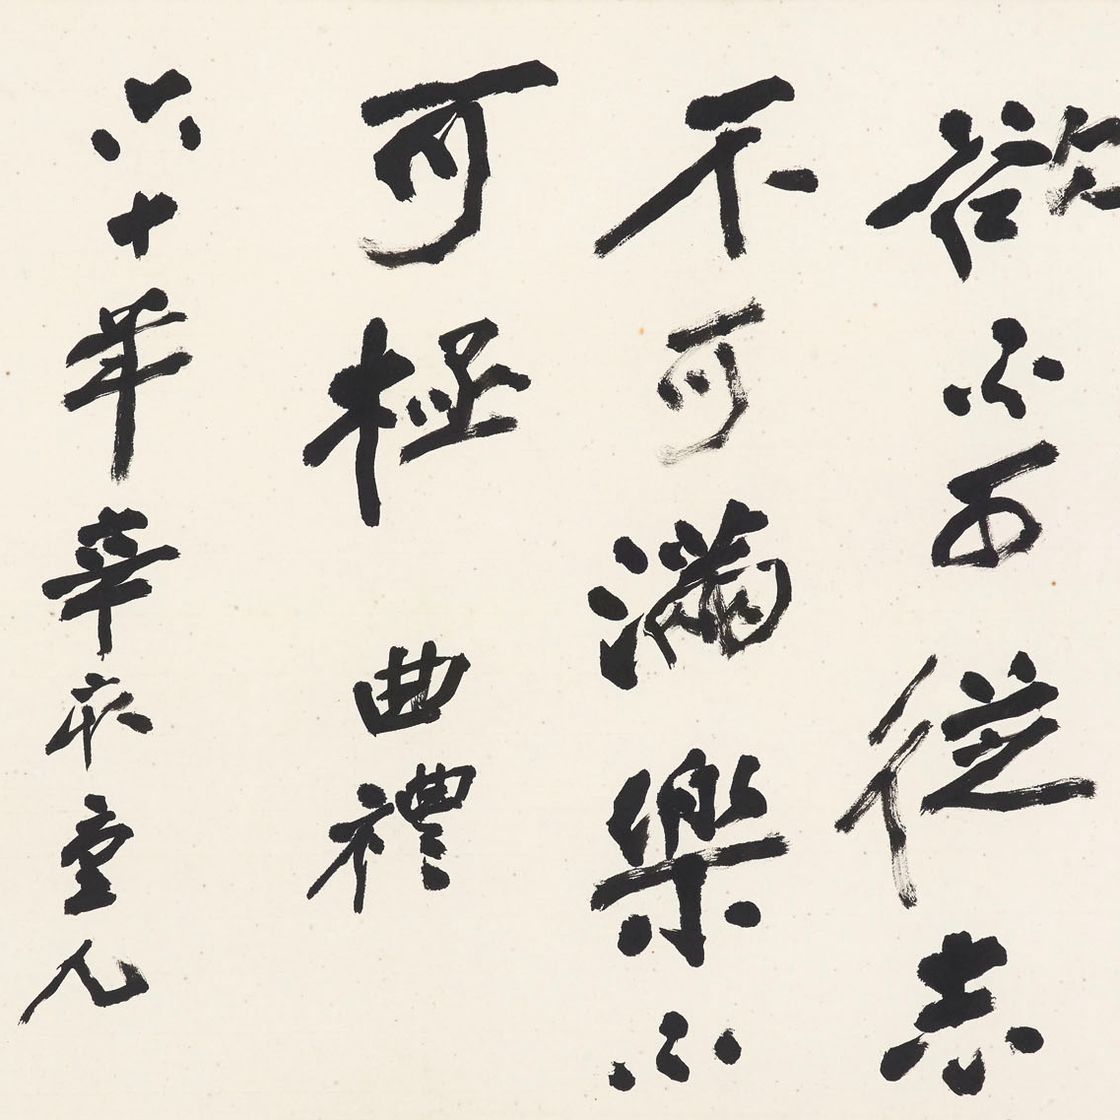 欲不可從志
不可滿樂不
可極 曲禮
六十年辛亥重九